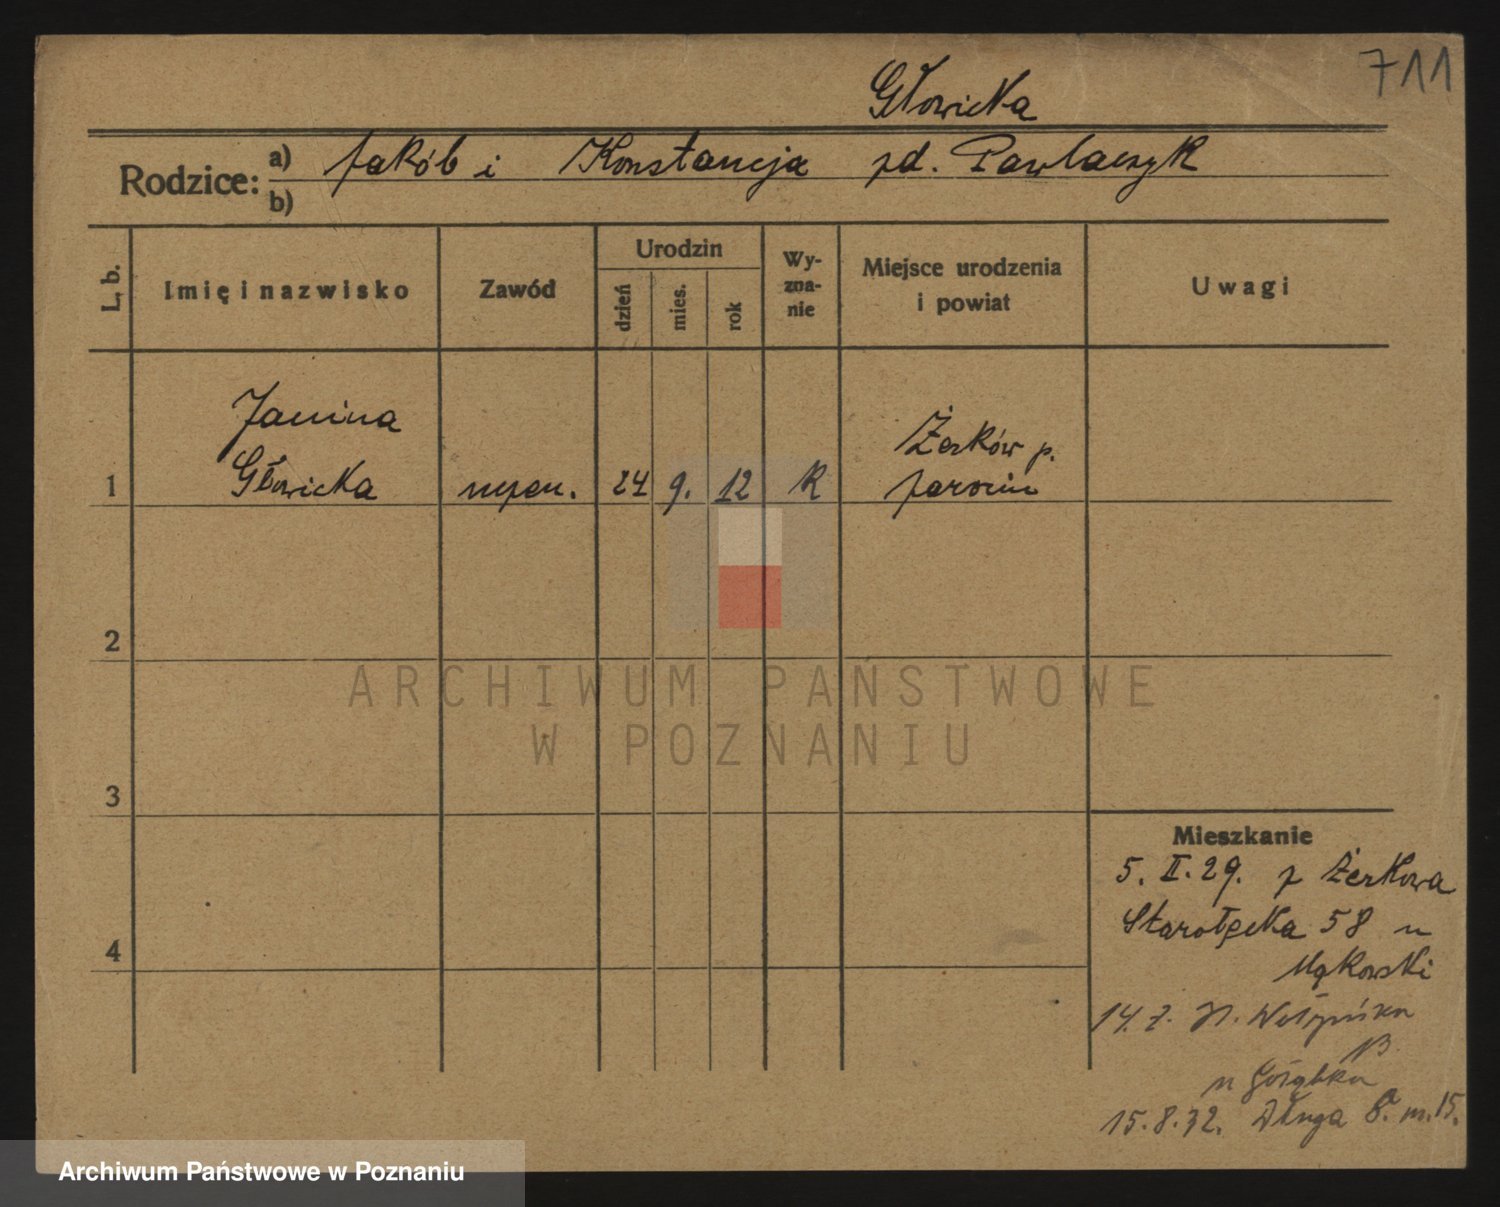 711
Głowicka
Rodzice: a) Jakób i Konstancja zd. Pawlaczyk
b)
L. b.
Imię i nazwisko
Zawód
Urodzin
dzień
mies.
rok
Wy-
zna-
nie
Miejsce urodzenia
i powiat
Uwagi
Janina
Żerków p.
1 Głowicka niezam. 24 9. 12 K Jarocin
2
3
4
ARCHIWUM PAŃSTWOWE
W POZNANIU
Mieszkanie
5. II. 29. z Żerkowa
Starołęcka 58 u
Mąkowski
14. 2. Wołyńska
13
u Gołąbka
15. 8. 32. Długa 8. m. 15.
Archiwum Państwowe w Poznaniu